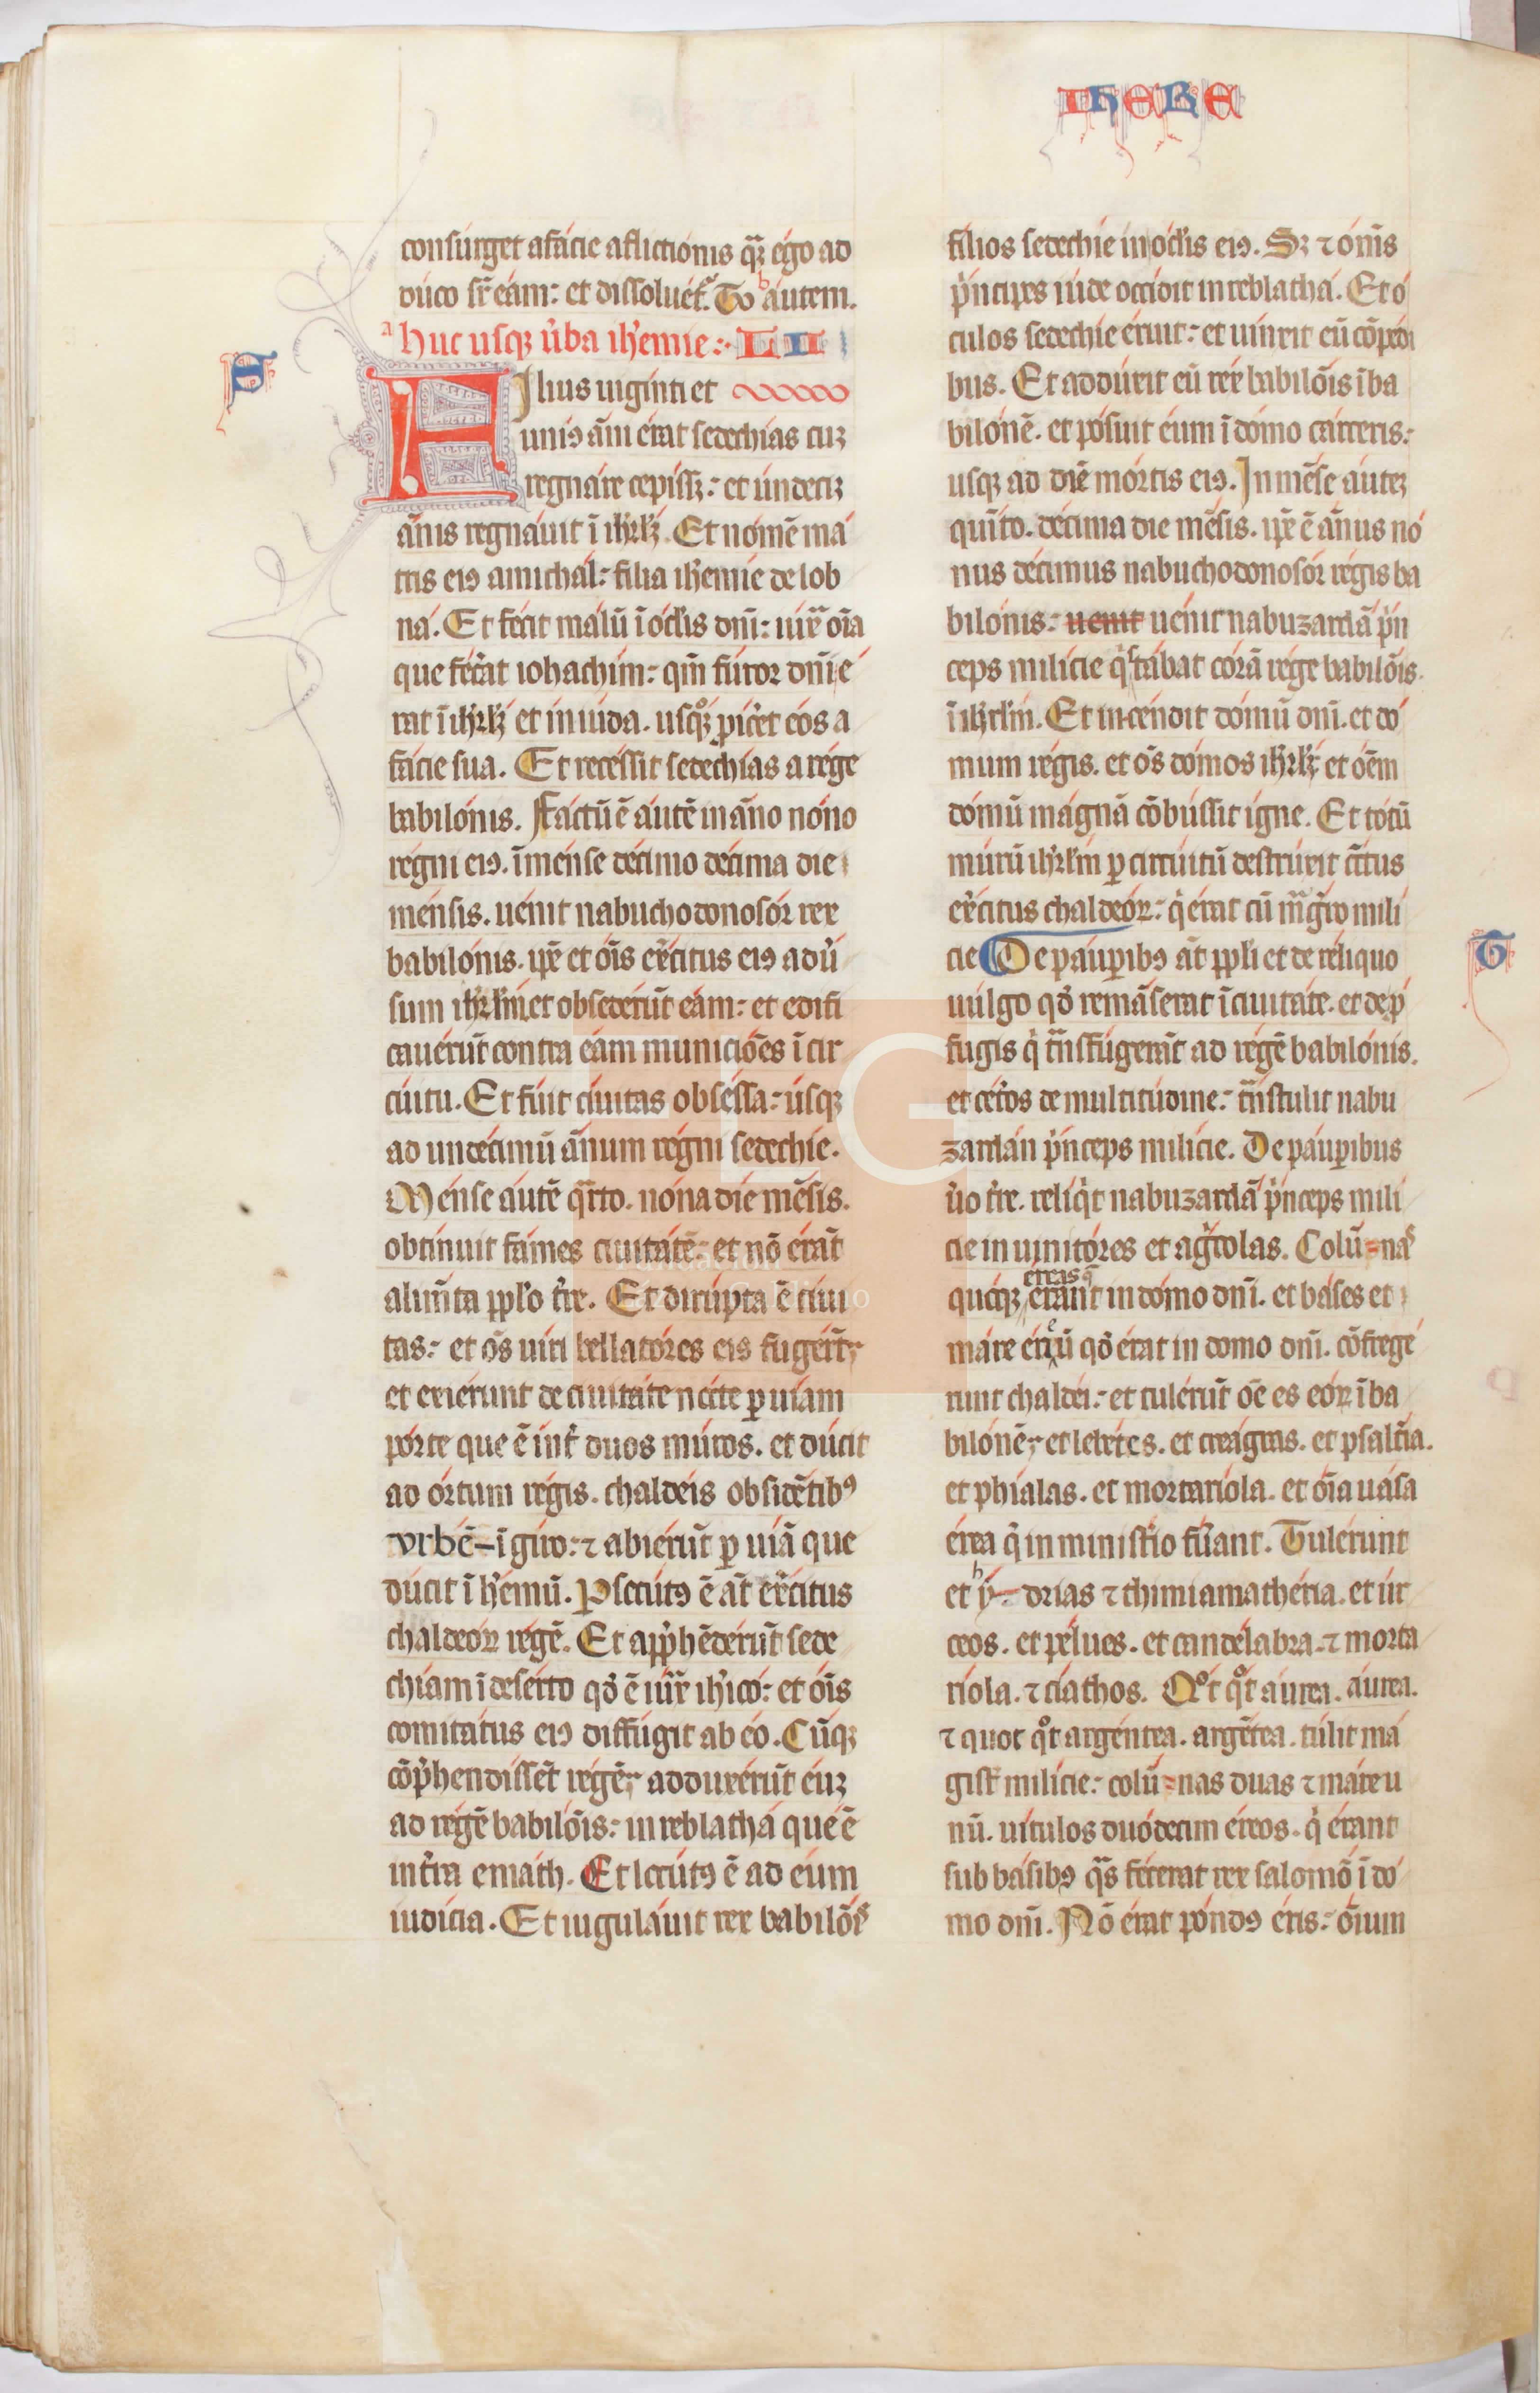 IHERE
consurget a facie aflictionis qͣꝫ ego ad
duco sr̃ eam: et dissoluet᷑. Tu autem.
huc usqꝫ u̇ba ih̾emie:· LII
S
Filius uiginti et
uniꝰ ãni erat sedechias cuꝫ
regnare cepissꝫ: et undeciꝫ
ãnis regnauit ĩ ih̾rlꝫ. Et nomẽ ma
tris eiꝰ amichal: filia ih̾emie de lob
na. Et fecit malũ ĩ oc̃lis dñi: iux̃ oĩa
que fec̾at iohachim: qm̃ furor dñi e
rat ĩ ih̾rlꝫ et in iuda. usqꝫ̊ ꝓic̾et eos a
facie sua. Et recessit sedechias a rege
babilonis. Factũ ẽ autẽ in ãno nono
regni eiꝰ. ĩ mense decimo decima die
mensis. uenit nabuchodonosor rex
babilonis. ip̃e et oĩs ex̾citus eiꝰ adu̾
sum ih̾rlm̃. et obsederũt eam: et edifi
cauerũt contra eam municiões ĩ cir
cuitu. Et fuit ciuitas obsessa: usqꝫ
ad undecimũ ãnum regni sedechie.
Mense autẽ qͣrto. nona die mẽsis.
obtinuit fames ciuitatẽ: et nõ erãt
alim̃ta ꝑpl̾o t̾re. Et dirupta ẽ ciui
tas: et oẽs uiri bellatores eiꝰ fuger̃t
et exierunt de ciuitate nocte ꝑ uiam
porte que ẽ int̾ duos muros. et ducit
ad ortum regis. chaldeis obsidẽtibꝰ
vrbẽ ĩ giro: ⁊ abierũt ꝑ uiã que
ducit ĩ h̾emũ. ꝑsecutꝰ ẽ aũt ex̾citus
chaldeoꝝ regẽ. Et app̾hẽderũt sede
chiam ĩ deserto qd̾ ẽ iux̃ ih̾ico: et oĩs
comitatus eiꝰ diffugit ab eo. Cũqꝫ
cõp̾hendissẽt regẽ: adduxerũt euꝫ
ad regẽ babilõis: in reblatha que ẽ
in t̾ra emath. Et locutꝰ ẽ ad eum
iudicia. Et iugulauit rex babilõis
filios sedechie in oc̃lis eiꝰ. Sꝫ ⁊ om̃s
p̾ncipes iude occidit in reblatha. Et o
culos sedechie eruit: et uinxit eũ cõpedi
bus. Et adduxit eũ rex babilõis ĩ ba
bilonẽ. et posuit eum ĩ domo carceris:
usqꝫ ad diẽ mortis eiꝰ. In mẽse auteꝫ
quĩto. decima die mẽsis. ip̃e ẽ ãnus no
nus decimus nabuchodonosor regis ba
bilonis: uenit uenit nabuzardã p̾n
ceps milicie q̾ stabat corã rege babilõis.
ĩ ih̾rlm̃. Et incendit domũ dñi. et do
mum regis. et oẽs domos ih̾rlꝫ et oẽm
domũ magnã cõbussit igne. Et totũ
murũ ih̾rlm̃ ꝑ circuitũ destruxit cũtus
ex̾citus chaldeoꝝ: q̾ erat cũ mãgr̾o mili
cie
T
De pauꝑibꝰ aũt ꝑpl̾i et de reliquo
uulgo qd̾ remãserat ĩ ciuitate. et de ꝑ
fugis q̾ tñsfugerãt ad regẽ babilonis.
et cet̾os de multitudine: tñstulit nabu
zardan p̾nceps milicie. De pauꝑibus
u̾o t̾re. reliq̾t nabuzardã p̾nceps mili
cie in uinitores et ag̾colas. Colũnas
quoqꝫ ereas q̃ erant in domo dñi. et bases et
mare ereũ qd̾ erat in domo dñi. cõfrege
runt chaldei: et tulerũt oẽ es eoꝝ ĩ ba
bilonẽ: et lebetes. et creagras. et psalt̾ia.
et phialas. et mortariola. et oĩa uasa
erea q̾ in minist̾io fũant. Tulerunt
et yhdrias ⁊ thimiamatheria. et ur
ceos. et pelues. et candelabra. ⁊ morta
riola. ⁊ ciathos. Qͦt qͦt aurea. aurea.
⁊ quot qͦt argentea. argẽtea. tulit ma
gist̾ milicie: colũnas duas ⁊ mare u
nũ. uitulos duodecim ereos. q̾ erant
sub basibꝰ qͣs fecerat rex salomõ ĩ do
mo dñi. Nõ erat pondꝰ eris: oĩum